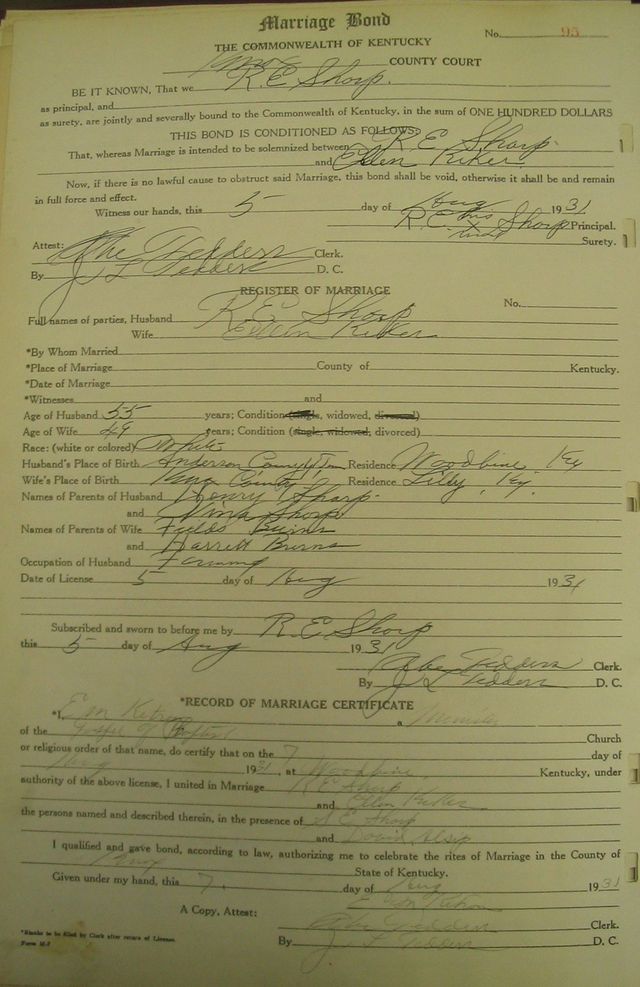 Marriage Bond
No. 95
THE COMMONWEALTH OF KENTUCKY
Knox COUNTY COURT
BE IT KNOWN, That we R. E. Sharp.
as principal, and
as surety, are jointly and severally bound to the Commonwealth of Kentucky, in the sum of ONE HUNDRED DOLLARS
THIS BOND IS CONDITIONED AS FOLLOWS:
That, whereas Marriage is intended to be solemnized between R. E. Sharp.
and Ellen Kiker
Now, if there is no lawful cause to obstruct said Marriage, this bond shall be void, otherwise it shall be and remain
in full force and effect.
Witness our hands, this 5 day of Aug 1931
R. E. his x mark Sharp Principal.
Surety.
Attest: Abe Tedders Clerk.
By J L Tedders D. C.
REGISTER OF MARRIAGE
No.
Full names of parties, Husband R E Sharp
Wife Ellen Kiker
*By Whom Married
*Place of Marriage County of Kentucky.
*Date of Marriage
*Witnesses and
Age of Husband 55 years; Condition (single, widowed, divorced)
Age of Wife 49 years; Condition (single, widowed, divorced)
Race: (white or colored) White
Husband's Place of Birth Anderson County Tenn Residence Woodbine, Ky
Wife's Place of Birth Knox County Residence Lilly, Ky.
Names of Parents of Husband Henry Sharp.
and Vina Sharp
Names of Parents of Wife Fields Burns
and Harrett Burns
Occupation of Husband Farming
Date of License 5 day of Aug 1931
Subscribed and sworn to before me by R. E. Sharp
this 5 day of Aug 1931
Abe Tedders Clerk.
By J L Tedders D. C.
*RECORD OF MARRIAGE CERTIFICATE
*I, E M a Minister
of the Gospel of Baptist Church
or religious order of that name, do certify that on the 7 day of
Aug 1931, at Woodbine Kentucky, under
authority of the above license, I united in Marriage R E Sharp
and Ellen Kiker
the persons named and described therein, in the presence of S. E. Sharp
and David Alsip
I qualified and gave bond, according to law, authorizing me to celebrate the rites of Marriage in the County of
Knox State of Kentucky.
Given under my hand, this 7, day of Aug 1931
E M
A Copy, Attest: Abe Tedders Clerk.
By J L Tedders D. C.
*Blanks to be filled by Clerk after return of License.
Form M-7